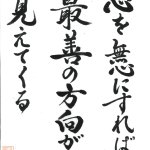 心を無心にすれば
最善の方向が
見えてくる